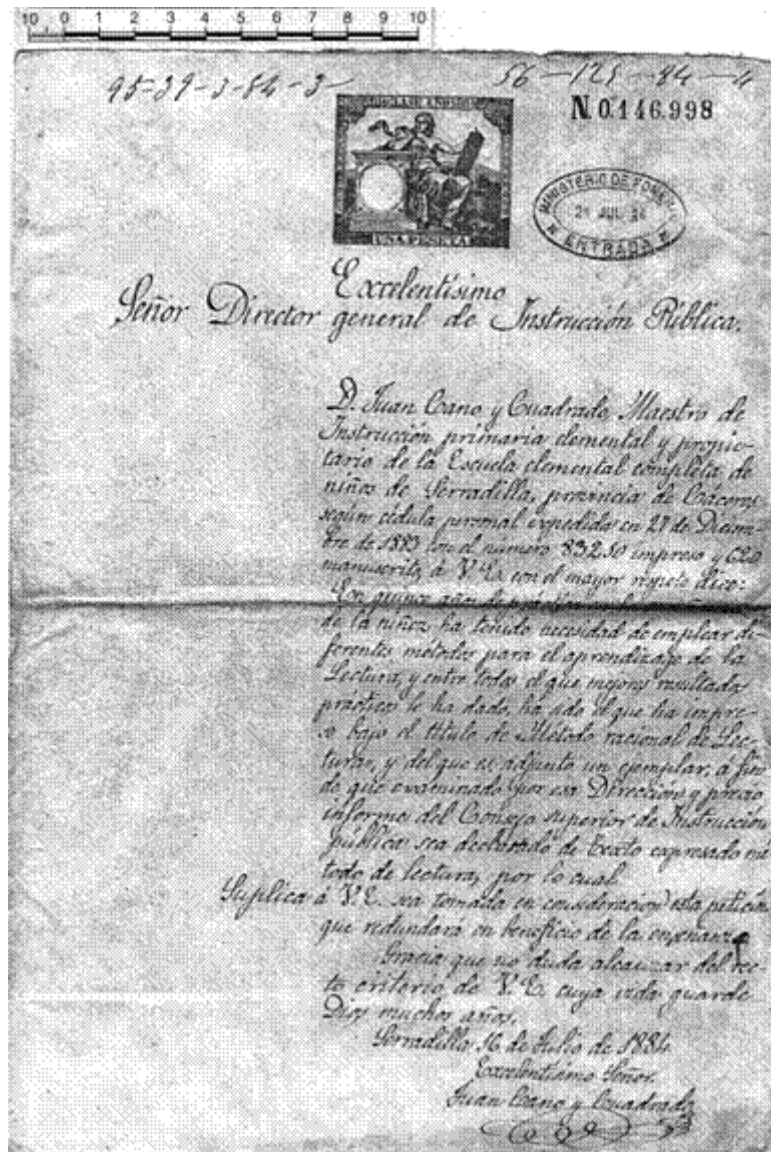 10 0 1 2 3 4 5 6 7 8 9 10
95-39-3-84-3-
56-125-84-4
N.0.146.998
UNA PESETA
MINISTERIO DE FOMENTO
21 JUL 84
ENTRADA
Excelentísimo
Señor Director general de Instrucción Pública.
D. Juan Cano y Cuadrado, Maestro de
Instrucción primaria elemental y propie-
tario de la Escuela elemental completa de
niños de Serradilla, provincia de Cáceres
según cédula personal expedida en 27 de Diciem-
bre de 1883 con el número 83250 impreso y 620
manuscrito, á V.E. con el mayor respeto dice:
Con quince años de práctica
de la niñez ha tenido necesidad de emplear di-
ferentes métodos para el aprendizage de la
Lectura, y entre todos el que mejores resultados
prácticos le ha dado, ha sido el que ha impre-
so bajo el título de Método racional de Lec-
tura, y del que se adjunta un ejemplar, a fin
de que examinado por esa Dirección y previo
informe del Consejo superior de Instrucción
pública sea declarado de texto expresado mé
todo de lectura, por lo cual
Suplica á V.E. sea tomada en consideración esta petición
que redundará en beneficio de la enseñanza
Gracia que no duda alcanzar del rec-
to criterio de V.E. cuya vida guarde
Dios muchos años.
Serradilla 16 de Julio de 1884
Excelentísimo Señor.
Juan Cano y Cuadrado